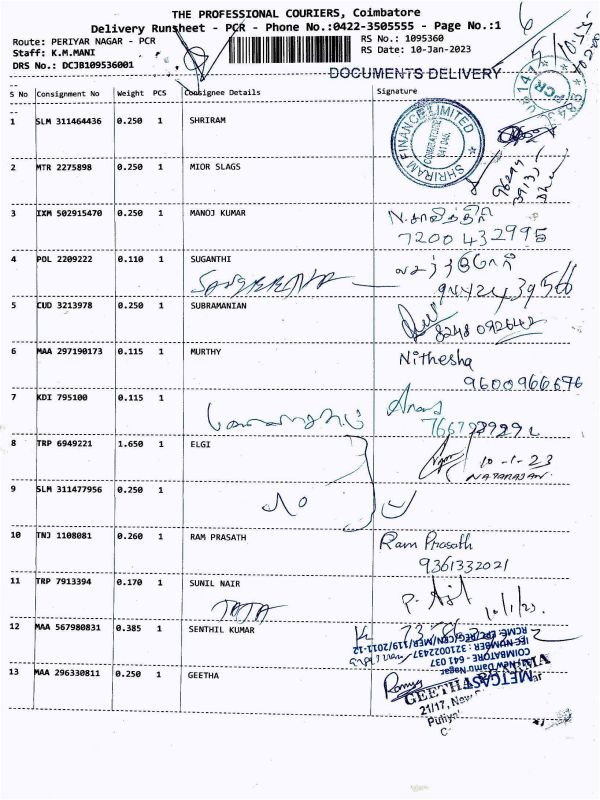 THE PROFESSIONAL COURIERS, Coimbatore
Delivery Runsheet - PCR - Phone No.:0422-3505555 - Page No.:1
Route: PERIYAR NAGAR - PCR
RS No.: 1095360
Staff: K.M.MANI
RS Date: 10-Jan-2023
DRS No.: DCJB109536001
DOCUMENTS DELIVERY
S No Consignment No Weight PCS Consignee Details Signature
1 SLM 311464436 0.250 1 SHRIRAM
SHRIRAM FINANCE LIMITED
COIMBATORE
641 046
2 MTR 2275898 0.250 1 MIOR SLAGS
3 IXM 502915470 0.250 1 MANOJ KUMAR N.சாவித்திரி
7200 432995
4 POL 2209222 0.110 1 SUGANTHI
9442439566
5 CUD 3213978 0.250 1 SUBRAMANIAN
8248 092642
6 MAA 297190173 0.115 1 MURTHY Nithesha
9600966696
7 KDI 795100 0.115 1
8 TRP 6949221 1.650 1 ELGI
10-1-23
NATARAJAN
9 SLM 311477956 0.250 1
10 TNJ 1108081 0.260 1 RAM PRASATH Ram Prasath
9361332021
11 TRP 7913394 0.170 1 SUNIL NAIR
TATA
10/1/23.
12 MAA 567980831 0.385 1 SENTHIL KUMAR
COIMBATORE - 641 037
IEC NUMBER : 3210002437
13 MAA 296330811 0.250 1 GEETHA
Ramya
METCAST
GEETHA PHARMA
21/17, New